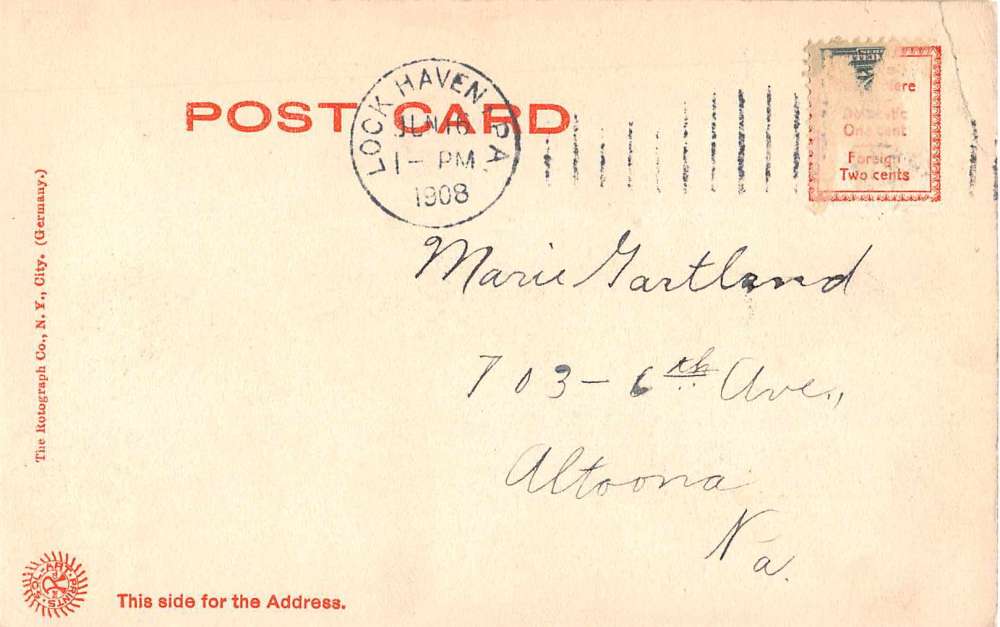 POST CARD
LOCK HAVEN, PA.
JUN 16
1 - PM
1908
Here
Domestic
One cent
Foreign
Two cents
Marie Gartland
703 - 6th Ave.,
Altoona
Pa.
The Rotograph Co., N. Y., City. (Germany.)
SOL-ART PRINTS
This side for the Address.